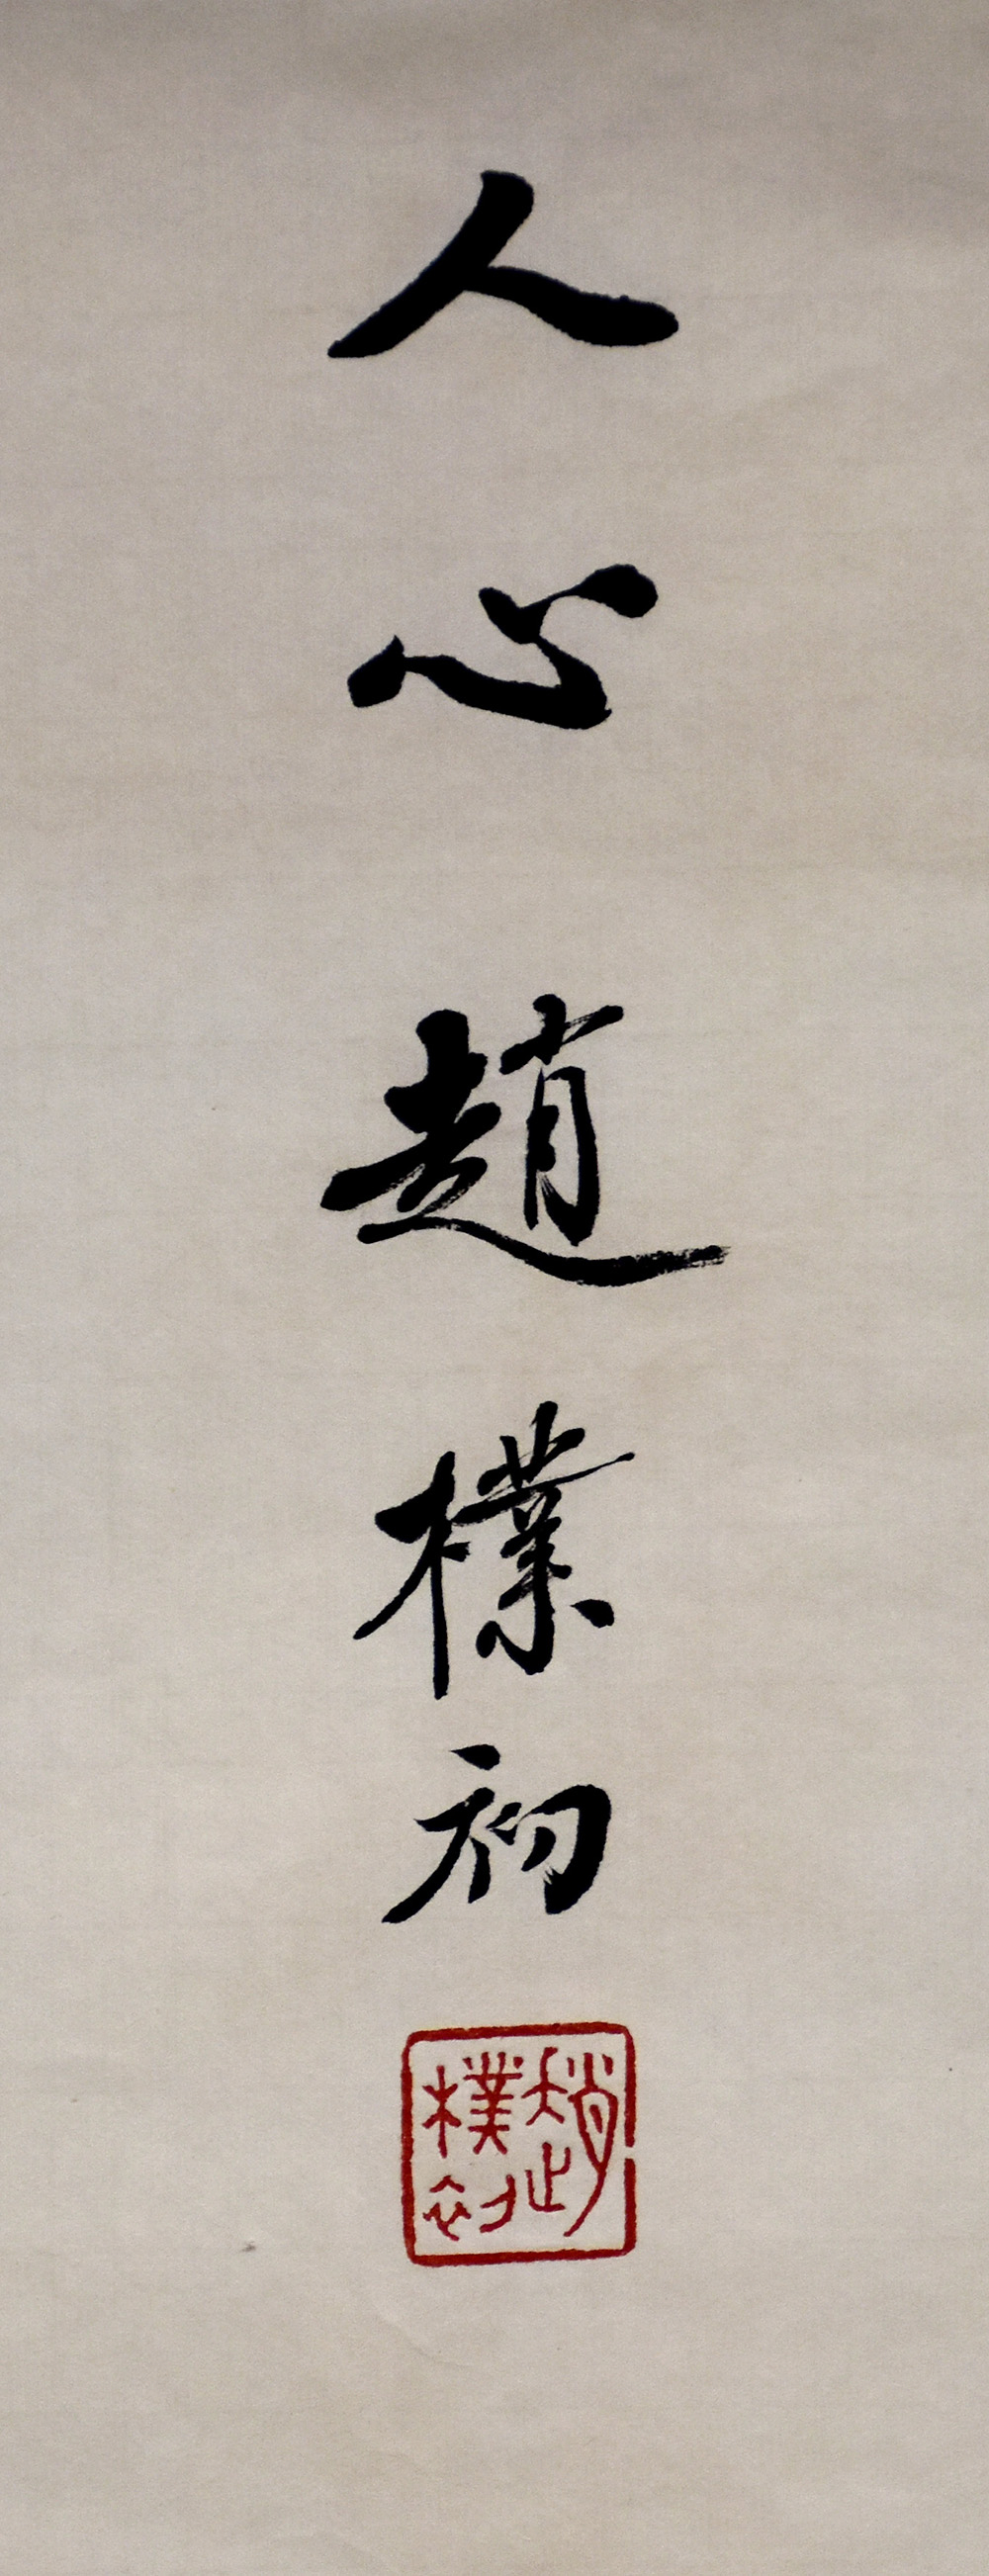 人心
趙樸初
趙樸初